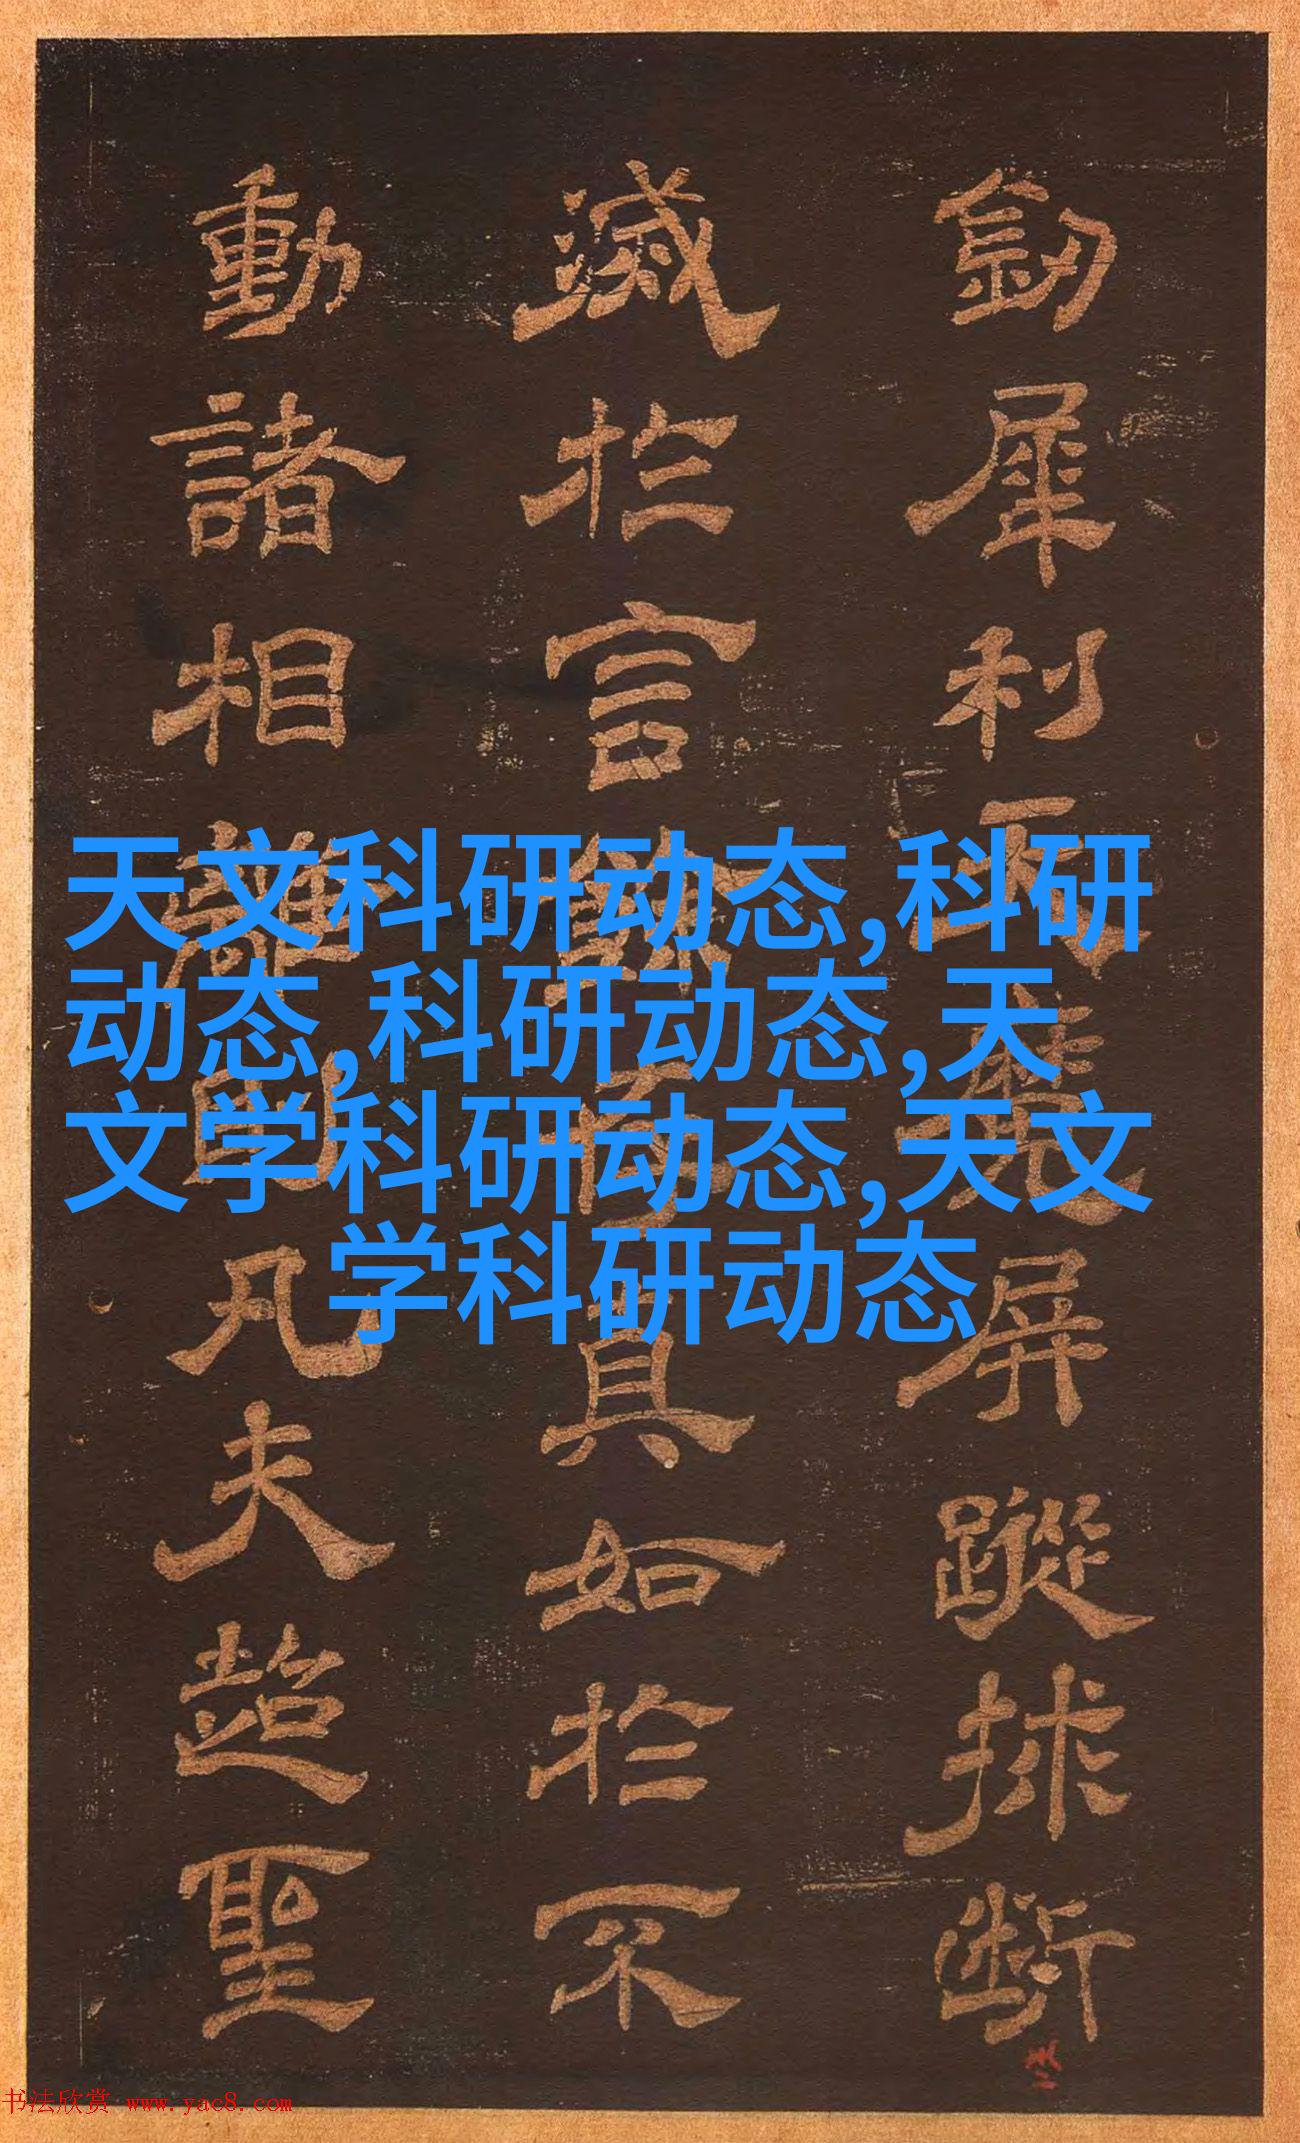 犀利而魔屏蹤斷
滅於言真如於不
動諸相離即凡夫超聖
天文科研动态,科研
动态,科研动态,天
文学科研动态,天文
学科研动态
书法欣赏 www.yac8.com